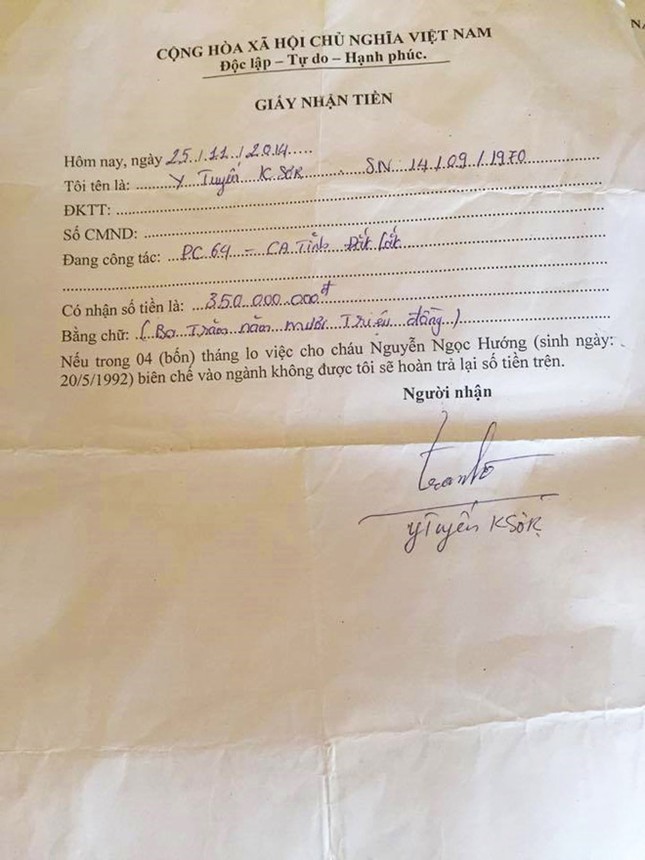 NA
CỘNG HÒA XÃ HỘI CHỦ NGHĨA VIỆT NAM
Độc lập – Tự do – Hạnh phúc.
GIẤY NHẬN TIỀN
Hôm nay, ngày 25/11/2014.....
Tôi tên là: ..... Y Tuyến KSơR ..... SN 14/09/1970 .....
ĐKTT: .....
Số CMND: .....
Đang công tác: ...PC 64 – CA Tỉnh Đắk Lắk.....
Có nhận số tiền là: ...350.000.000đ.....
Bằng chữ: ...(Ba Trăm năm mươi Triệu đồng).....
Nếu trong 04 (bốn) tháng lo việc cho cháu Nguyễn Ngọc Hướng (sinh ngày:
20/5/1992) biên chế vào ngành không được tôi sẽ hoàn trả lại số tiền trên.
Người nhận
Y Tuyến KSơR